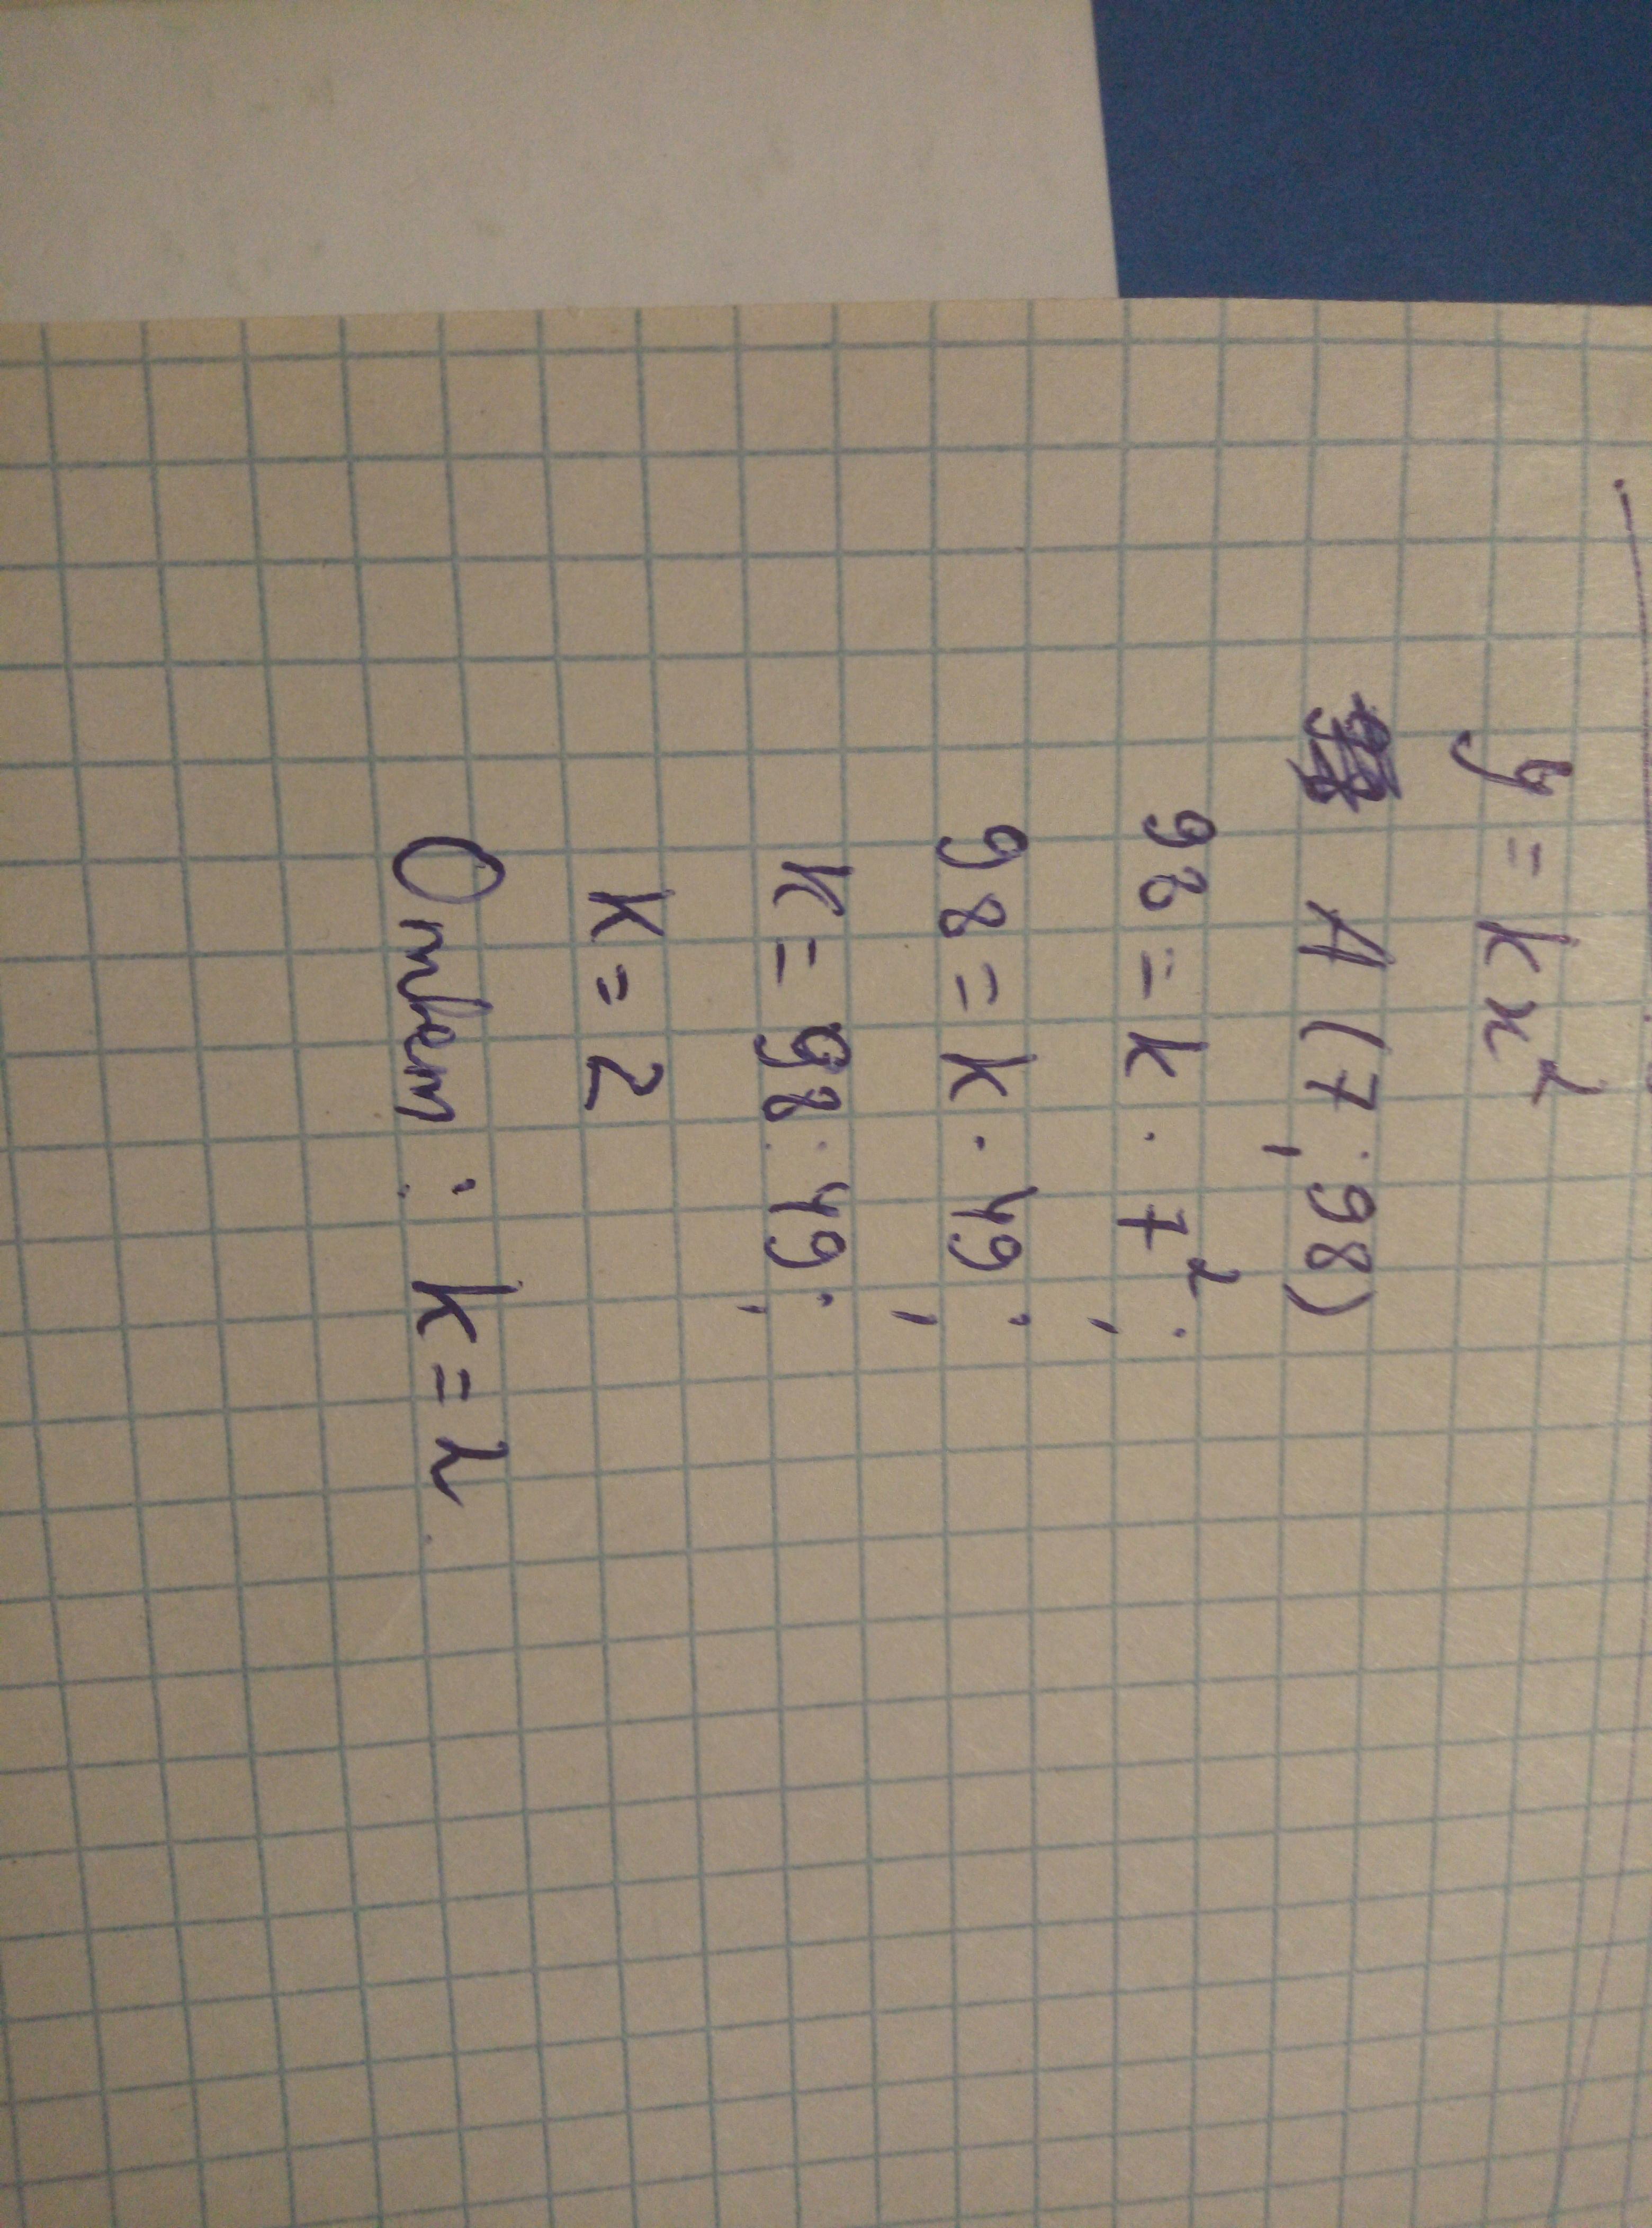 y = kx²
A (7; 98)
98 = k · 7²;
98 = k · 49;
k = 98 : 49;
k = 2
Ответ: k = 2.